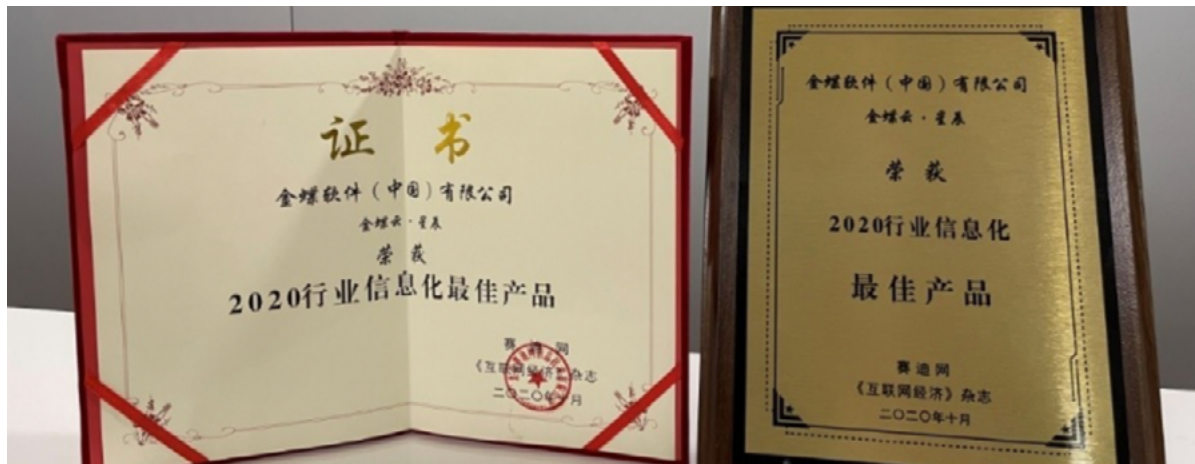 证 书
金蝶软件（中国）有限公司
金蝶云·星辰
荣 获
2020行业信息化最佳产品
赛迪网
《互联网经济》杂志
二〇二〇年十月
金蝶软件（中国）有限公司
金蝶云·星辰
荣 获
2020行业信息化
最佳产品
赛迪网
《互联网经济》杂志
二〇二〇年十月